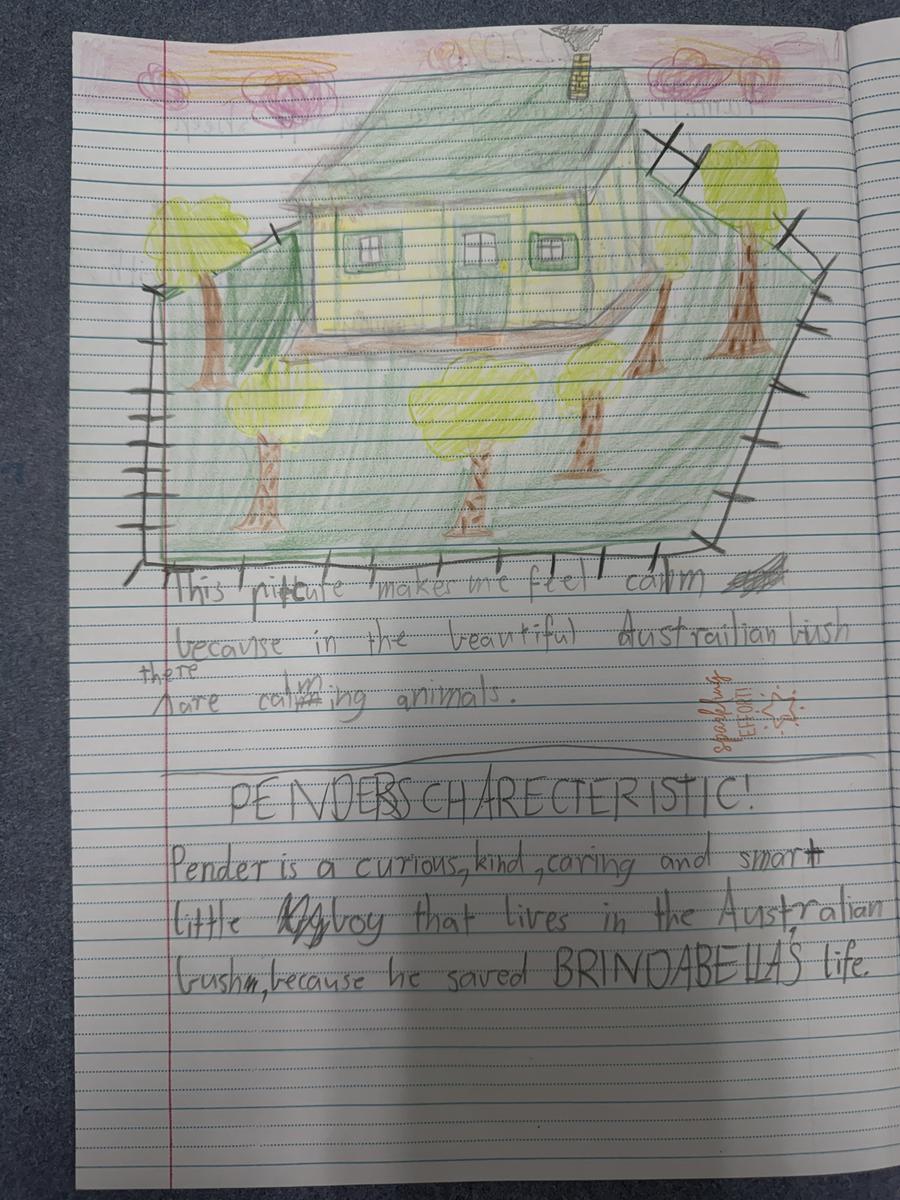 This pitcute makes me feel calm
because in the beautiful Austrailian bush
there
are calming animals.
sparkling
EFFORT!
PENDERS CHARECTERISTIC!
Pender is a curious, kind, caring and smart
little boy that lives in the Australian
bush, because he saved BRINDABELLA'S life.